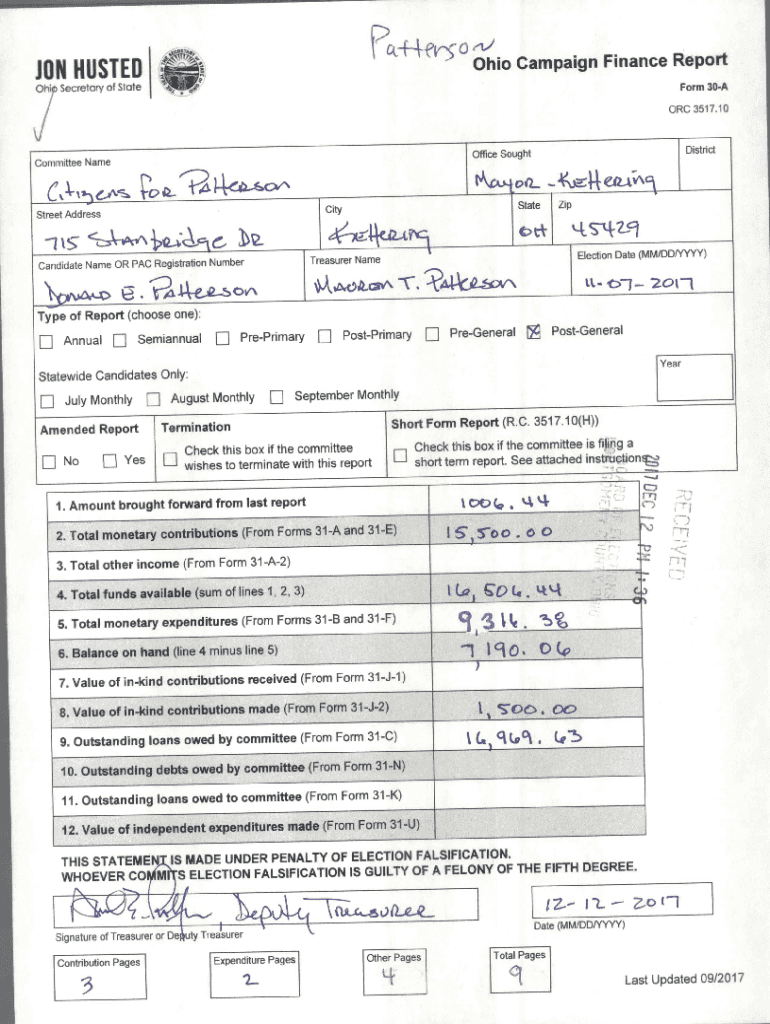 Patterson
JON HUSTED
Ohio Secretary of State
Ohio Campaign Finance Report
Form 30-A
ORC 3517.10
Committee Name
Citizens for Patterson
Office Sought
Mayor - Kettering
District
Street Address
715 Stanbridge DR
City
Kettering
State
OH
Zip
45429
Candidate Name OR PAC Registration Number
Donald E. Patterson
Treasurer Name
Maureen T. Patterson
Election Date (MM/DD/YYYY)
11-07-2017
Type of Report (choose one):
Annual Semiannual Pre-Primary Post-Primary Pre-General Post-General
Statewide Candidates Only:
Year
July Monthly August Monthly September Monthly
Amended Report
No Yes
Termination
Check this box if the committee
wishes to terminate with this report
Short Form Report (R.C. 3517.10(H))
Check this box if the committee is filing a
short term report. See attached instructions.
RECEIVED
2017 DEC 12 PM 1:36
1. Amount brought forward from last report 1006.44
2. Total monetary contributions (From Forms 31-A and 31-E) 15,500.00
3. Total other income (From Form 31-A-2)
4. Total funds available (sum of lines 1, 2, 3) 16,506.44
5. Total monetary expenditures (From Forms 31-B and 31-F) 9,316.38
6. Balance on hand (line 4 minus line 5) 7,190.06
7. Value of in-kind contributions received (From Form 31-J-1)
8. Value of in-kind contributions made (From Form 31-J-2) 1,500.00
9. Outstanding loans owed by committee (From Form 31-C) 16,969.63
10. Outstanding debts owed by committee (From Form 31-N)
11. Outstanding loans owed to committee (From Form 31-K)
12. Value of independent expenditures made (From Form 31-U)
THIS STATEMENT IS MADE UNDER PENALTY OF ELECTION FALSIFICATION.
WHOEVER COMMITS ELECTION FALSIFICATION IS GUILTY OF A FELONY OF THE FIFTH DEGREE.
, Deputy Treasurer
12-12-2017
Signature of Treasurer or Deputy Treasurer
Date (MM/DD/YYYY)
Contribution Pages
3
Expenditure Pages
2
Other Pages
4
Total Pages
9
Last Updated 09/2017